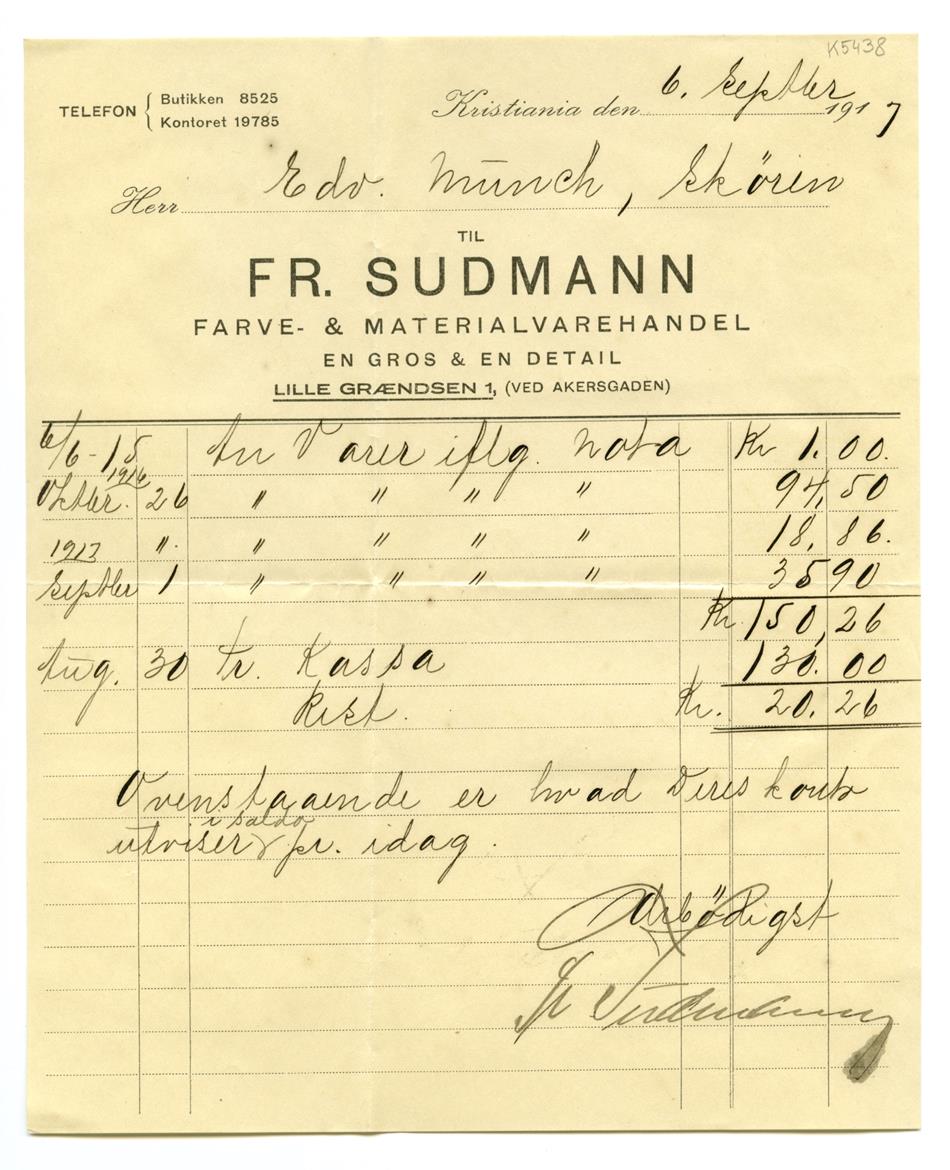 K5438
TELEFON { Butikken 8525
Kontoret 19785
Kristiania den 6. Septber 1917
Herr Edv. Munch, Skøien
TIL
FR. SUDMANN
FARVE- & MATERIALVAREHANDEL
EN GROS & EN DETAIL
LILLE GRÆNDSEN 1, (VED AKERSGADEN)
6/6-15 An Varer iflg. Nota Kr 1.00.
1916
Oktber. 26 " " " " 94,50
" . " " " " 18,86.
1917
Septber 1 " " " " 35 90
Kr. 150,26
Aug. 30 Pr. Kassa 130.00
Rest. Kr. 20.26
Ovenstaaende er hvad Deres konto
i saldo
utviser pr. idag.
Ærbödigst
Fr Sudmann